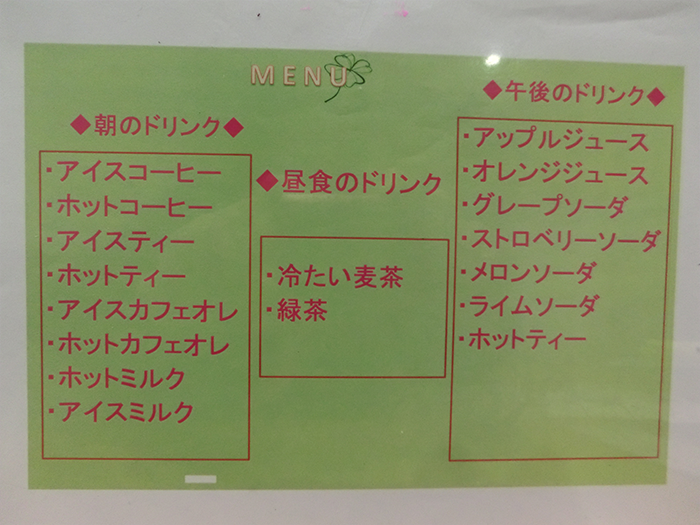 MENU
◆朝のドリンク◆
・アイスコーヒー
・ホットコーヒー
・アイスティー
・ホットティー
・アイスカフェオレ
・ホットカフェオレ
・ホットミルク
・アイスミルク
◆昼食のドリンク
・冷たい麦茶
・緑茶
◆午後のドリンク◆
・アップルジュース
・オレンジジュース
・グレープソーダ
・ストロベリーソーダ
・メロンソーダ
・ライムソーダ
・ホットティー